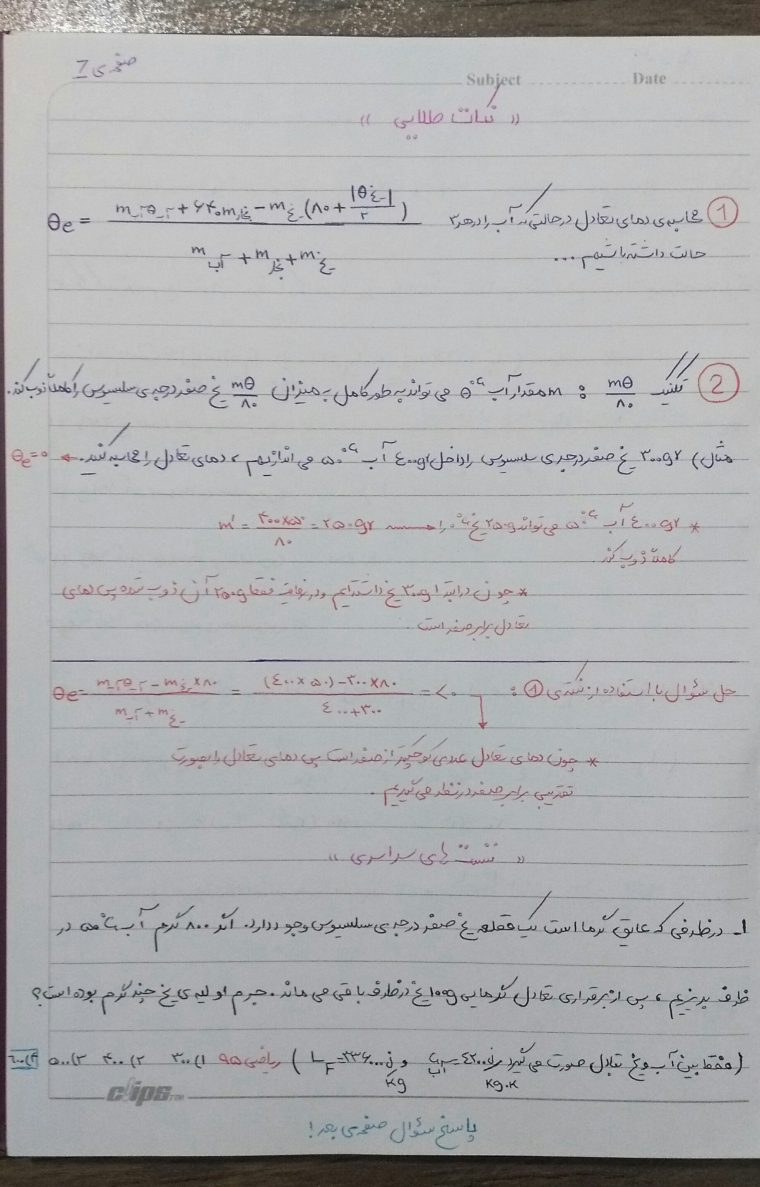 صفحه‌ی 7
Subject Date
« نکات طلایی »
1 محاسبه‌ی دمای تعادل در حالتی که آب را در هر ۳
حالت داشته باشیم ...
θe = (m_آب θ_آب + ۶۴۰ m_بخار − m_یخ (۸۰ + |θ_یخ|/۲)) / (m_آب + m_بخار + m_یخ)
2 تکنیک mθ/۸۰ : m مقدار آب θ°C می تواند به طور کامل به میزان mθ/۸۰ یخ صفر درجه‌ی سلسیوس را کاملاً ذوب کند.
مثال) ۳۰۰gr یخ صفر درجه‌ی سلسیوس را داخل ٤۰۰gr آب ۵۰°C می اندازیم ، دمای تعادل را محاسبه کنید. ← θe=۰
* ٤۰۰gr آب ۵۰°C می تواند ۲۵۰g یخ ۰°C را ← m' = ۴۰۰×۵۰/۸۰ = ۲۵۰gr
کاملاً ذوب کند.
* چون در ابتدا ۳۰۰g یخ داشته‌ایم و در نهایت فقط ۲۵۰g آن ذوب شده پس دمای
تعادل برابر صفر است.
حل سؤال با استفاده از نکته‌ی ① : θe = (m_آب θ_آب − m_یخ ×۸۰) / (m_آب + m_یخ) = ((٤۰۰×۵۰)−۳۰۰×۸۰) / (٤۰۰+۳۰۰) = <۰
* چون دمای تعادل عددی کوچکتر از صفر است پس دمای تعادل را بصورت
تقریبی برابر صفر در نظر می گیریم.
« تست های سراسری »
1- در ظرفی که عایق گرما است یک قطعه یخ صفر درجه‌ی سلسیوس وجود دارد. اگر ۸۰۰ گرم آب ۵۰°C در
ظرف بریزیم ، پس از برقراری تعادل گرمایی ۱۰۰g یخ در ظرف باقی می ماند. جرم اولیه‌ی یخ چند گرم بوده است؟
(فقط بین آب و یخ تبادل صورت می گیرد و C_آب=٤۲۰۰ J/kg.K و L_F=۳۳۶۰۰۰ J/kg) ریاضی ۹۵ ۱) ۳۰۰ ۲) ۴۰۰ ۳) ۵۰۰ ۴) ٦۰۰
clips
پاسخ سؤال صفحه‌ی بعد!